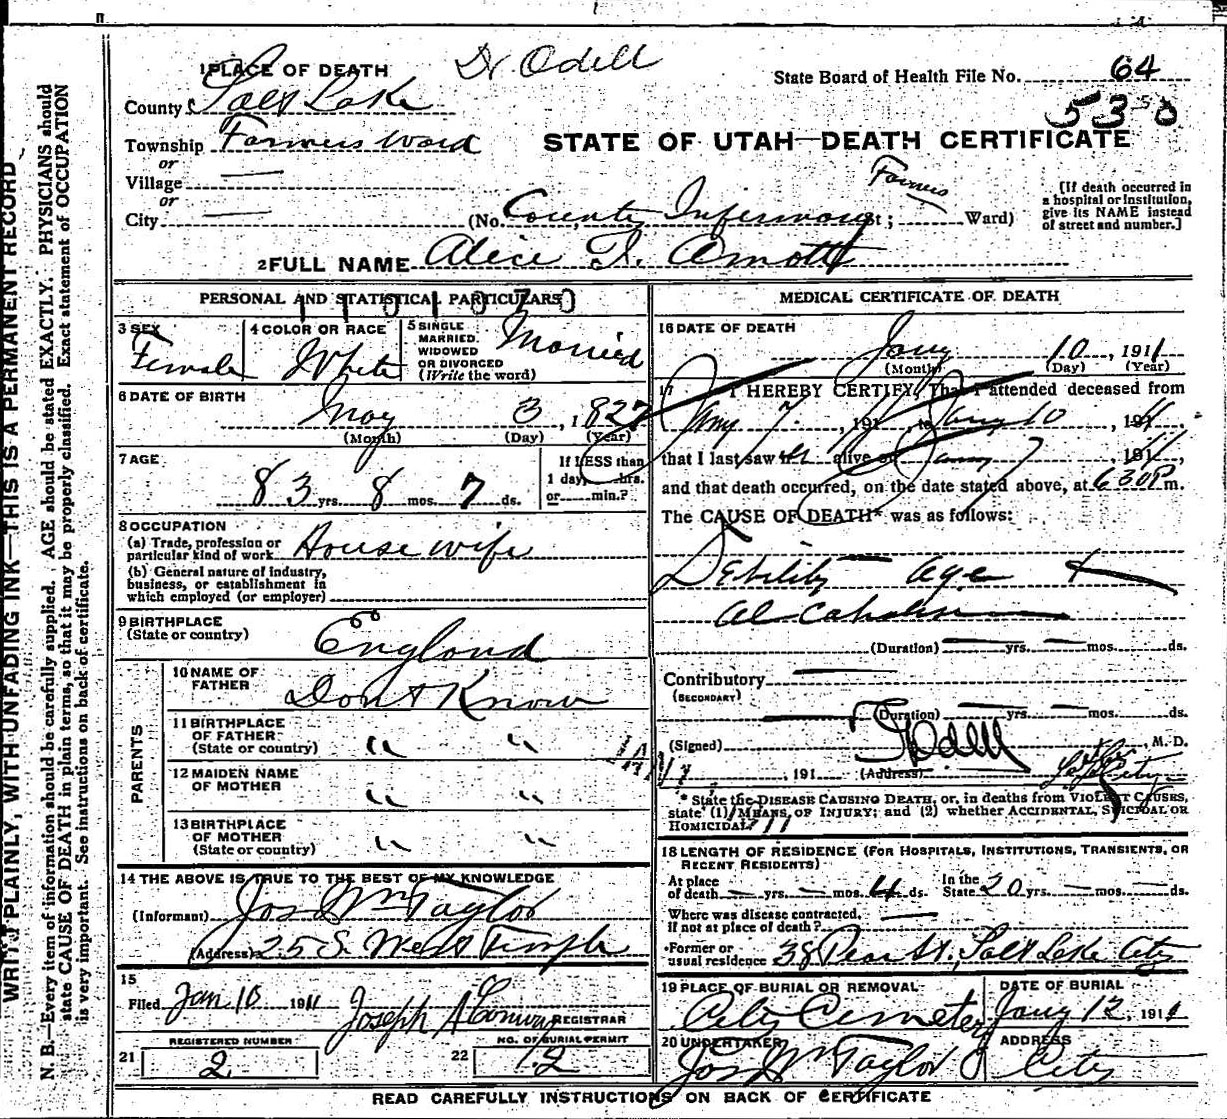 1 PLACE OF DEATH Dr Odell
State Board of Health File No. 64
County Salt Lake
5350
Township Farmers Ward
STATE OF UTAH—DEATH CERTIFICATE
or
Village
or
City (No. County Infirmary St; Farmers Ward)
[If death occurred in
a hospital or institution,
give its NAME instead
of street and number.]
2 FULL NAME Alice I. Arnott
PERSONAL AND STATISTICAL PARTICULARS
3 SEX Female
4 COLOR OR RACE White
5 SINGLE
MARRIED.
WIDOWED
OR DIVORCED
(Write the word)
Married
6 DATE OF BIRTH
May 3, 1827
(Month) (Day) (Year)
7 AGE
83 yrs. 8 mos. 7 ds.
If LESS than
1 day, hrs.
or min.?
8 OCCUPATION
(a) Trade, profession or
particular kind of work House wife
(b) General nature of industry,
business, or establishment in
which employed (or employer)
9 BIRTHPLACE
(State or country) England
PARENTS
10 NAME OF
FATHER Dont Know
11 BIRTHPLACE
OF FATHER
(State or country) " "
12 MAIDEN NAME
OF MOTHER " "
13 BIRTHPLACE
OF MOTHER
(State or country) " "
14 THE ABOVE IS TRUE TO THE BEST OF MY KNOWLEDGE
(Informant) Jos Wm Taylor
(Address) 25 S. West Temple
15
Filed Jan 10 1911 Joseph REGISTRAR
REGISTERED NUMBER
21 2
NO. OF BURIAL PERMIT
22 12
MEDICAL CERTIFICATE OF DEATH
16 DATE OF DEATH
Jany 10, 1911
(Month) (Day) (Year)
17 I HEREBY CERTIFY, That I attended deceased from
Jany 7, 1911, to Jany 10, 1911,
that I last saw her alive on Jany 7, 1911,
and that death occurred, on the date stated above, at 6 30 P m.
The CAUSE OF DEATH* was as follows:
Debility — age
(Duration) yrs. mos. ds.
Contributory
(SECONDARY)
(Duration) yrs. mos. ds.
(Signed) Odell, M. D.
JAN , 191 (Address) City
* State the DISEASE CAUSING DEATH, or, in deaths from VIOLENT CAUSES,
state (1) MEANS OF INJURY; and (2) whether ACCIDENTAL, SUICIDAL OR
HOMICIDAL.
18 LENGTH OF RESIDENCE (FOR HOSPITALS, INSTITUTIONS, TRANSIENTS, OR
RECENT RESIDENTS)
At place
of death yrs. mos. 4 ds. In the
State 20 yrs. mos. ds.
Where was disease contracted,
if not at place of death?
Former or
usual residence 38 Pear St. Salt Lake City
19 PLACE OF BURIAL OR REMOVAL
City Cemetery
DATE OF BURIAL
Jany 12, 1911
20 UNDERTAKER
Jos Wm Taylor
ADDRESS
City
READ CAREFULLY INSTRUCTIONS ON BACK OF CERTIFICATE
WRITE PLAINLY, WITH UNFADING INK—THIS IS A PERMANENT RECORD
N. B.—Every item of information should be carefully supplied. AGE should be stated EXACTLY. PHYSICIANS should
state CAUSE OF DEATH in plain terms, so that it may be properly classified. Exact statement of OCCUPATION
is very important. See instructions on back of certificate.